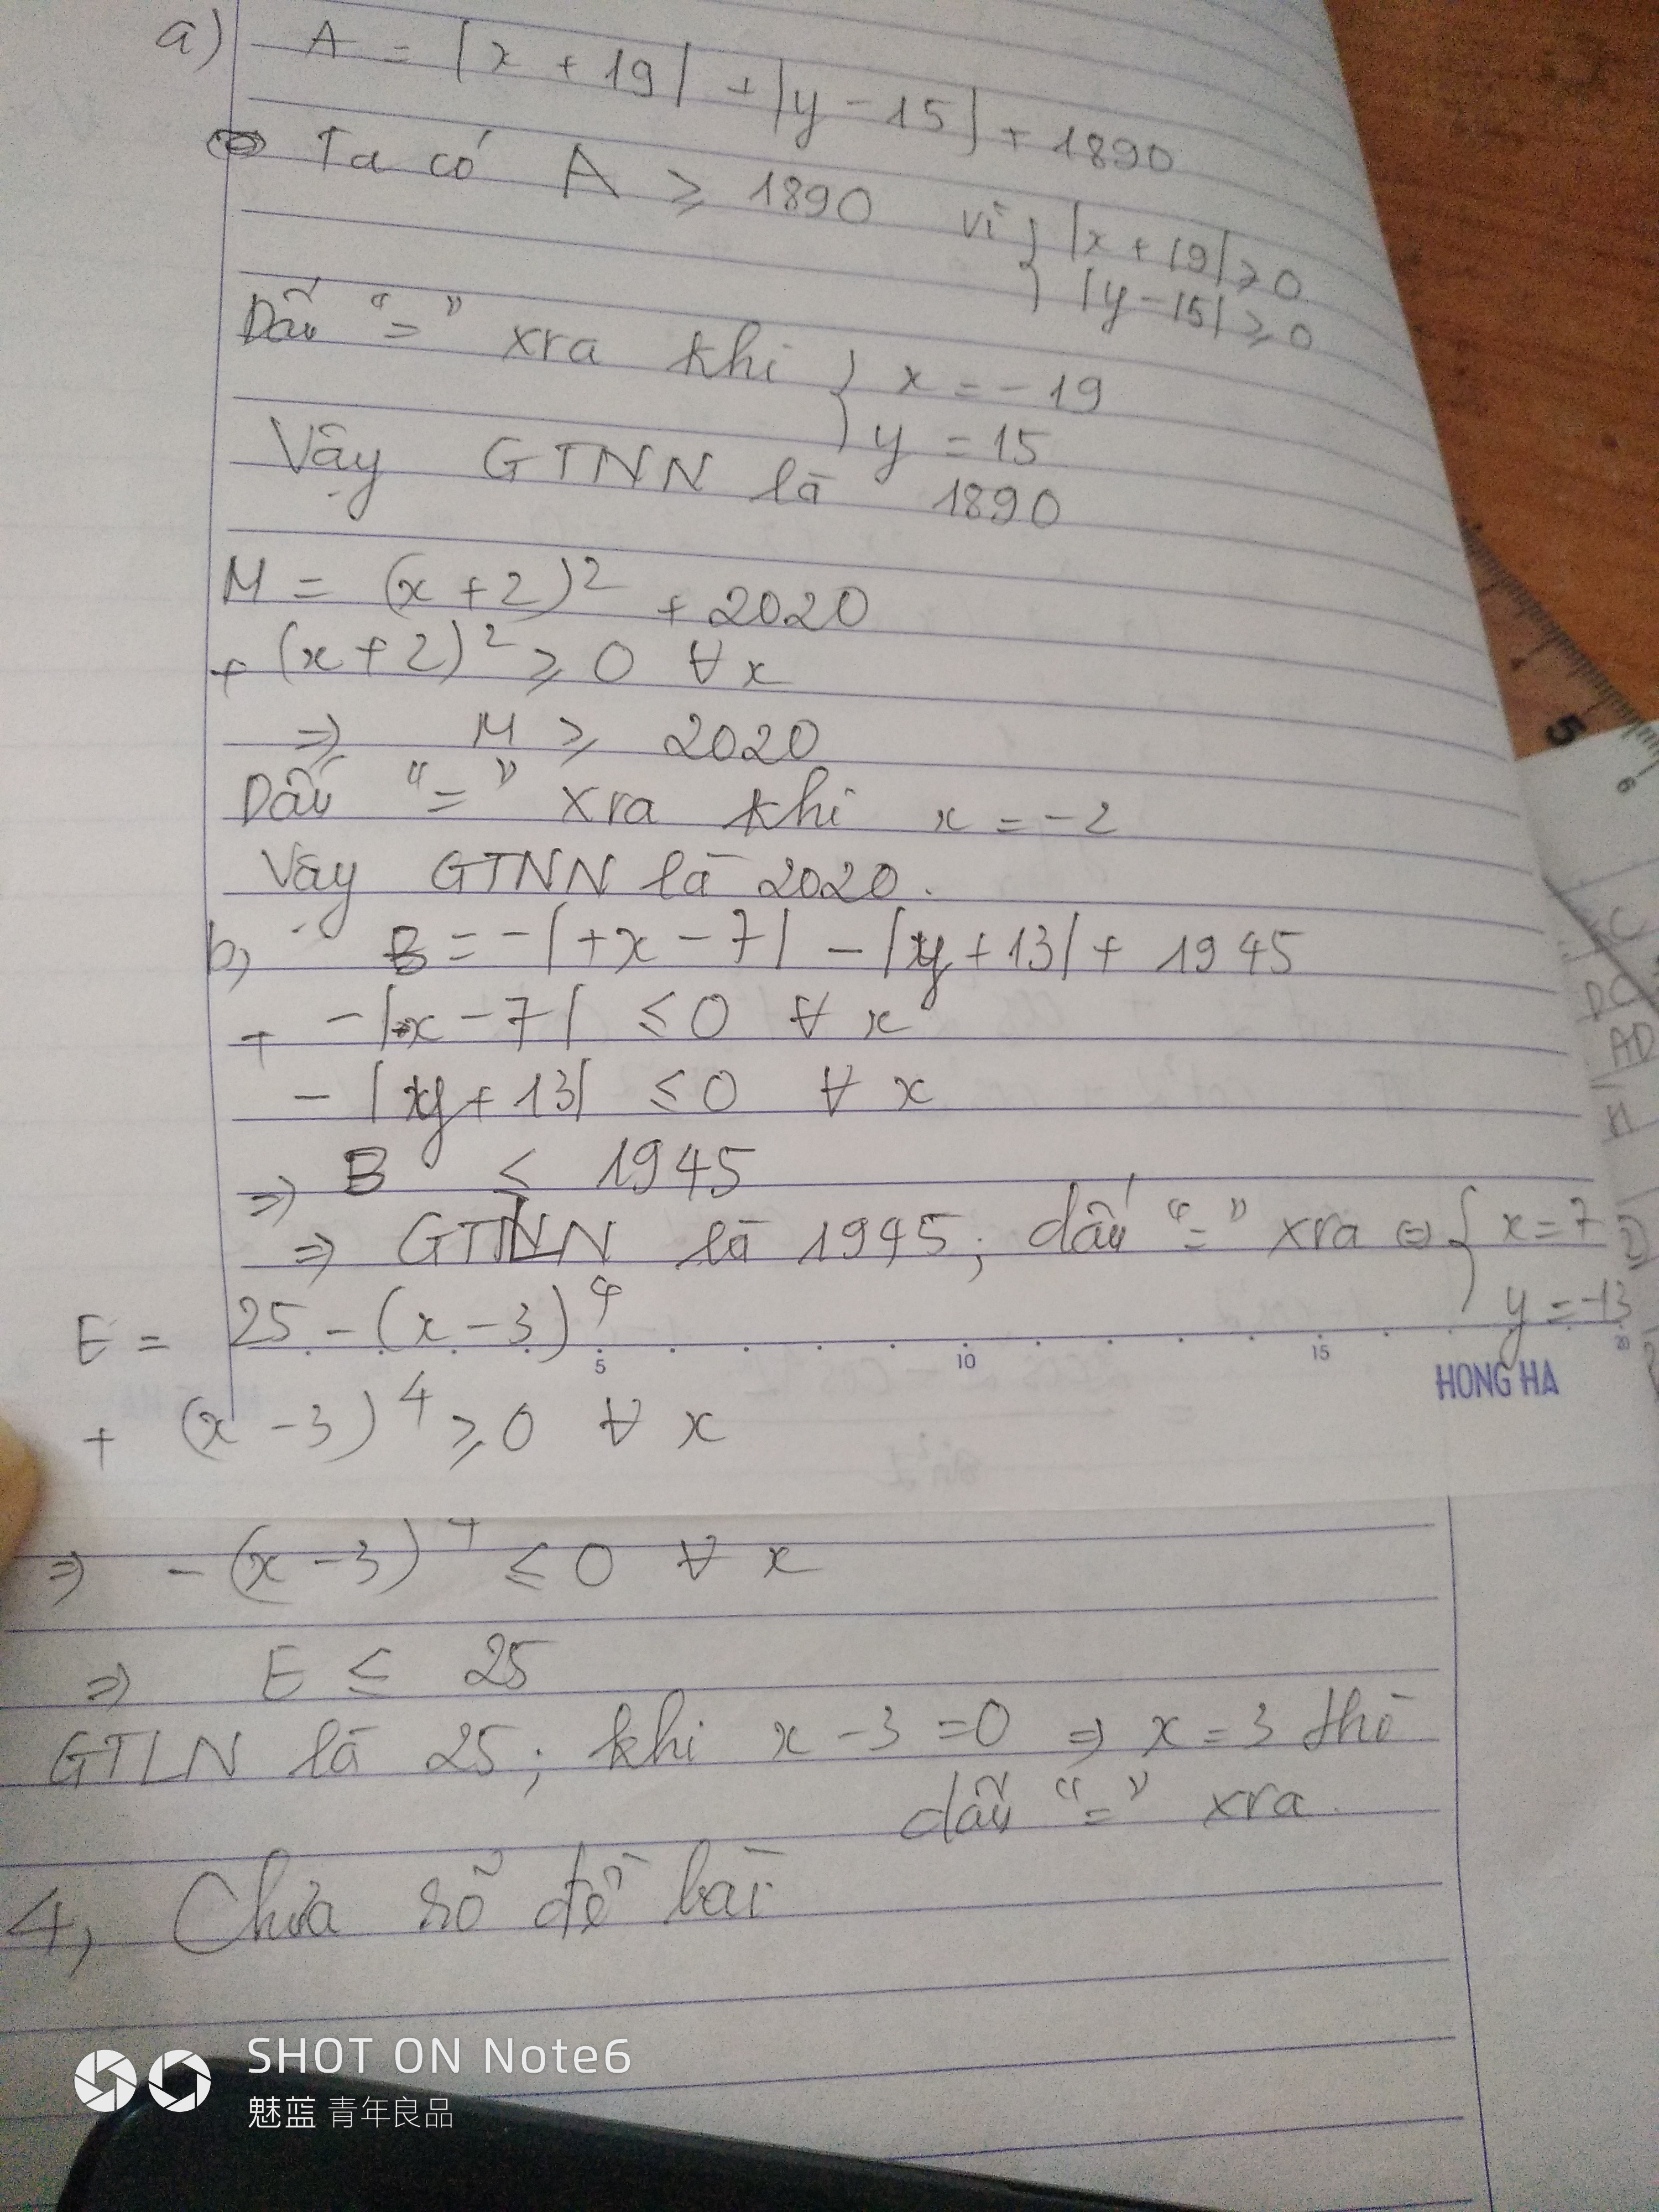 a) A = |x + 19| + |y - 15| + 1890
Ta có A ≥ 1890 vì { |x + 19| ≥ 0
{ |y - 15| ≥ 0
Dấu "=" xra khi { x = -19
{ y = 15
Vậy GTNN là 1890
M = (x + 2)² + 2020
+ (x + 2)² ≥ 0 ∀ x
⇒ M ≥ 2020
Dấu "=" xra khi x = -2
Vậy GTNN là 2020.
b, B = -|+x - 7| - |y + 13| + 1945
+ -|x - 7| ≤ 0 ∀ x
- |y + 13| ≤ 0 ∀ x
⇒ B ≤ 1945
⇒ GTLN là 1945; dấu "=" xra ⇔ { x = 7
y = -13
E = 25 - (x - 3)⁴
5 10 15 20
HONG HA
+ (x - 3)⁴ ≥ 0 ∀ x
⇒ - (x - 3)⁴ ≤ 0 ∀ x
⇒ E ≤ 25
GTLN là 25; khi x - 3 = 0 ⇒ x = 3 thì
dấu "=" xra.
4, Chưa rõ đề bài
5
6
C
DC
AD
H
SHOT ON Note6
魅蓝 青年良品